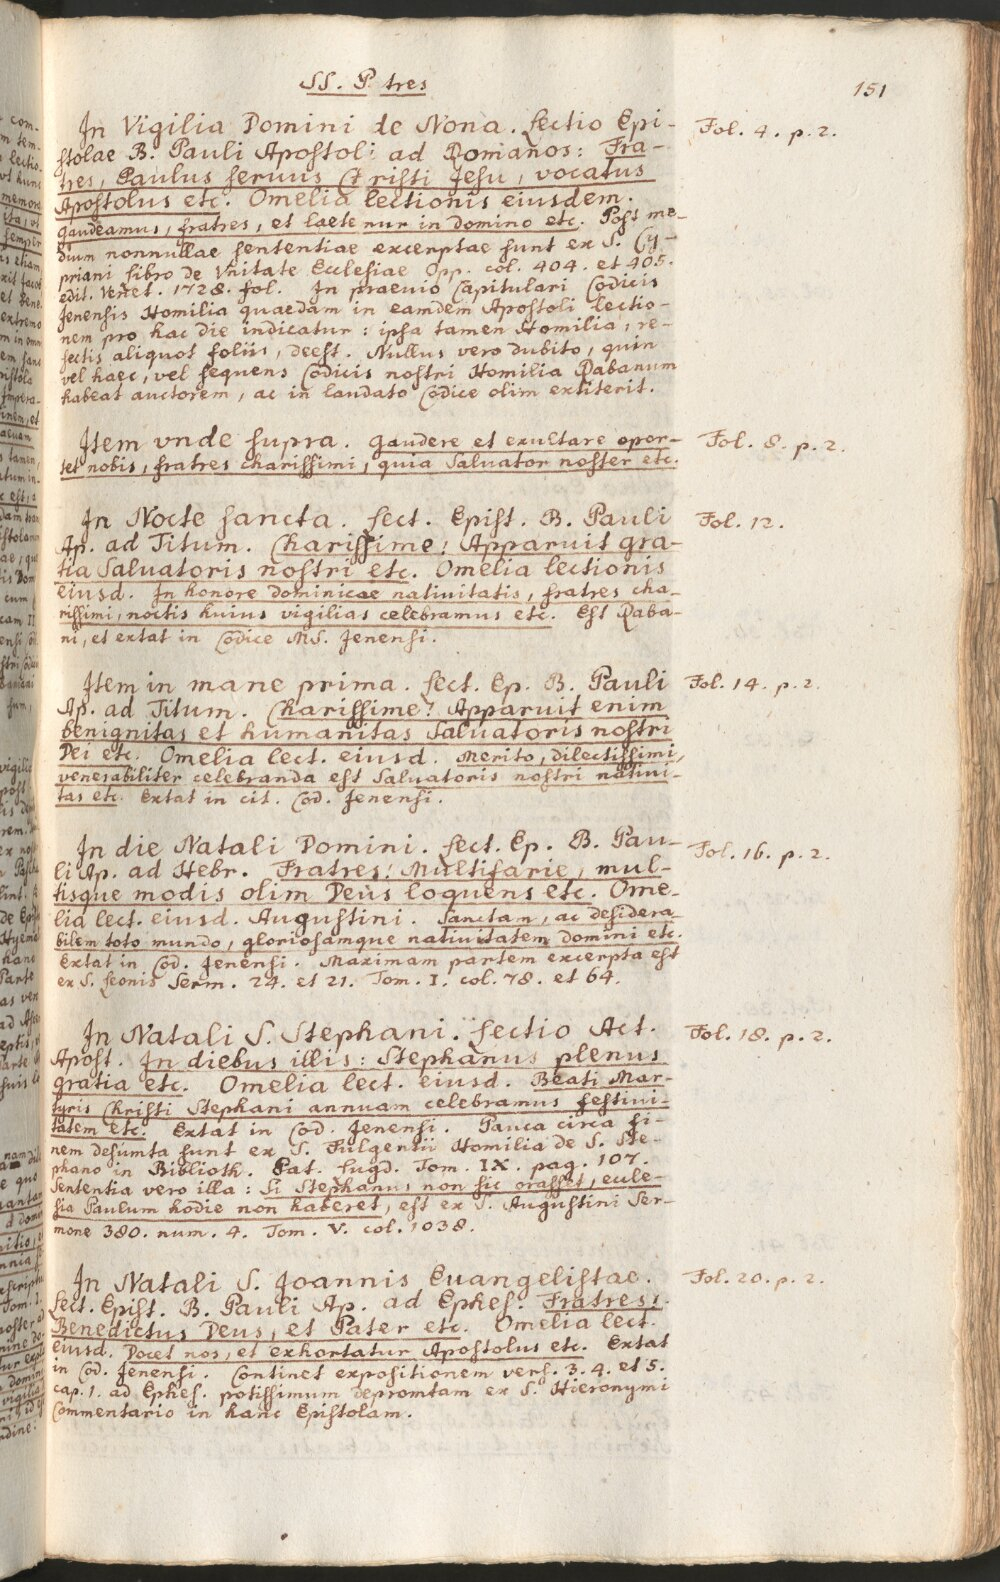 SS. P. tres
151
In Vigilia Domini de Nona. Lectio Epi- Fol. 4. p. 2.
stolae B. Pauli Apostoli ad Romanos: Fra-
tres, Paulus servus Christi Jesu, vocatus
Apostolus etc. Omelia lectionis eiusdem.
Gaudeamus, fratres, et laetemur in domino etc. Post me-
dium nonnullae sententiae excerptae sunt ex S. Cy-
priani libro de Vnitate Ecclesiae Opp. col. 404. et 405.
edit. Venet. 1728. fol. In praevio Capitulari Codicis
Jenensis Homilia quaedam in eamdem Apostoli lectio-
nem pro hac die indicatur: ipsa tamen Homilia, re-
sectis aliquot foliis, deest. Nullus vero dubito, quin
vel haec, vel sequens Codicis nostri Homilia Rabanum
habeat auctorem, ac in laudato Codice olim extiterit.
Item vnde supra. Gaudere et exultare opor- Fol. 8. p. 2.
tet nobis, fratres charissimi, quia Saluator noster etc.
In Nocte sancta. Lect. Epist. B. Pauli Fol. 12.
Ap. ad Titum. Charissime! Apparuit gra-
tia Saluatoris nostri etc. Omelia lectionis
eiusd. In honore dominicae nativitatis, fratres cha-
rissimi, noctis huius vigilias celebramus etc. Est Raba-
ni, et extat in Codice MS. Jenensi.
Item in mane prima. Lect. Ep. B. Pauli Fol. 14. p. 2.
Ap. ad Titum. Charissime! Apparuit enim
benignitas et humanitas Saluatoris nostri
Dei etc. Omelia lect. eiusd. Merito, dilectissimi,
venerabiliter celebranda est Saluatoris nostri nativi-
tas etc. Extat in cit. Cod. Jenensi.
In die Natali Domini. Lect. Ep. B. Pau- Fol. 16. p. 2.
li Ap. ad Hebr. Fratres! Multifarie, mul-
tisque modis olim Deus loquens etc. Ome-
lia lect. eiusd. Augustini. Sanctam, ac desidera-
bilem toto mundo, gloriosamque nativitatem domini etc.
Extat in Cod. Jenensi. Maximam partem excerpta est
ex S. Leonis Serm. 24. et 21. Tom. I. col. 78. et 64.
In Natali S. Stephani. Lectio Act. Fol. 18. p. 2.
Apost. In diebus illis: Stephanus plenus
gratia etc. Omelia lect. eiusd. Beati Mar-
tyris Christi Stephani annuam celebramus festivi-
tatem etc. Extat in Cod. Jenensi. Pauca circa fi-
nem desumta sunt ex S. Fulgentii Homilia de S. Ste-
phano in Biblioth. Pat. Lugd. Tom. IX. pag. 107.
Sententia vero illa: Si Stephanus non sic orasset, eccle-
sia Paulum hodie non haberet, est ex S. Augustini Ser-
mone 380. num. 4. Tom. V. col. 1038.
In Natali S. Joannis Euangelistae. Fol. 20. p. 2.
Lect. Epist. B. Pauli Ap. ad Ephes. Fratres!
Benedictus Deus, et Pater etc. Omelia lect.
eiusd. Docet nos, et exhortatur Apostolus etc. Extat
in Cod. Jenensi. Continet expositionem vers. 3. 4. et 5.
cap. 1. ad Ephes. potissimum depromtam ex S. Hieronymi
Commentario in hanc Epistolam.